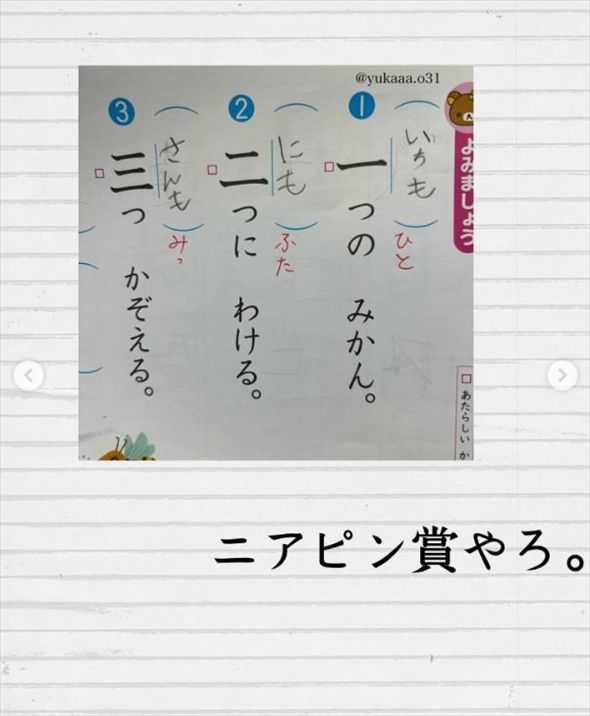 @yukaaa.o31
よみましょう
1
一つの みかん。
いちも
ひと
2
二つに わける。
にも
ふた
3
三つ かぞえる。
さんも
みっ
あたらしい か
ニアピン賞やろ。